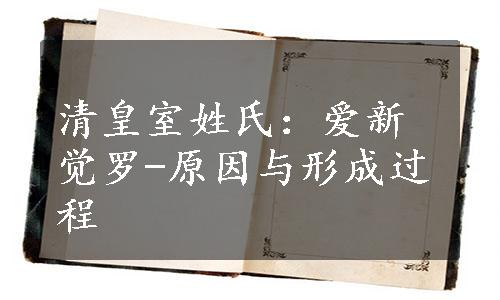 清皇室姓氏：爱新
觉罗-原因与形成过
程